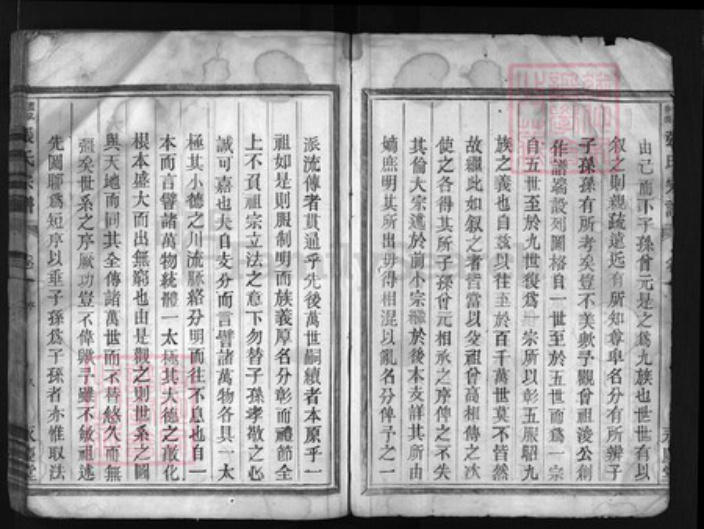 由己而下子孫曾元是之爲九族也世世有以
叙之則親疏遠近有所知尊卑名分有所辨子
子孫孫有所考矣豈不美歟予觀曾祖淩公創
作譜端設列圖格自一世至於五世而爲一宗
自五世至於九世復爲一宗所以彰五服昭九
族之義也自茲以往至於百千萬世莫不皆然
故繼此如叙之者當以父祖曾高相傳之次
使之各得其所子孫曾元相承之序俾之不失
其倫大宗遞於前小宗繼於後本支詳其所由
嫡庶明其所出毋得相混以亂名分俾予之一
派流傳者貫通乎先後萬世嗣續者本原乎一
祖如是則服制明而族義厚名分彰而禮節全
上不負祖宗立法之意下勿替子孫孝敬之心
誠可嘉也夫自支分而言譬諸萬物各具一太
極其小德之川流脈絡分明而往不息也自一
本而言譬諸萬物統體一太極其大德之敦化
根本盛大而出無窮也由是觀之則世系之圖
與天地而同其全傳諸萬世而不替悠久而無
疆矣世系之序厥功豈不偉歟予雖不敏祖述
先圖聊爲短序以垂子孫爲子孫者亦惟取法
張氏宗譜
永慶堂